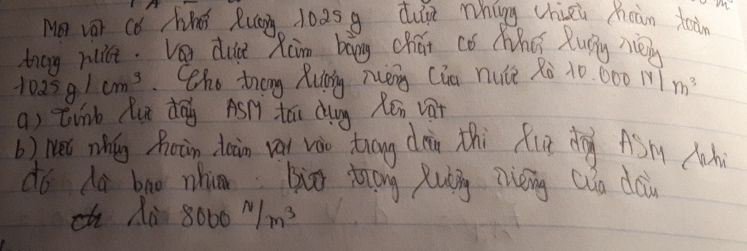 Một vật có khối lượng 1025 g được nhúng chìm hoàn toàn
trong nước. Vật được làm bằng chất có khối lượng riêng
1025 g/cm³. Cho trọng lượng riêng của nước là 10.000 N/m³
a) Tính lực đẩy ASM tác dụng lên vật
b) Nếu nhúng hoàn toàn vật vào trong dầu thì lực đẩy ASM khi
đó là bao nhiêu. Biết trọng lượng riêng của dầu
là 8000 N/m³